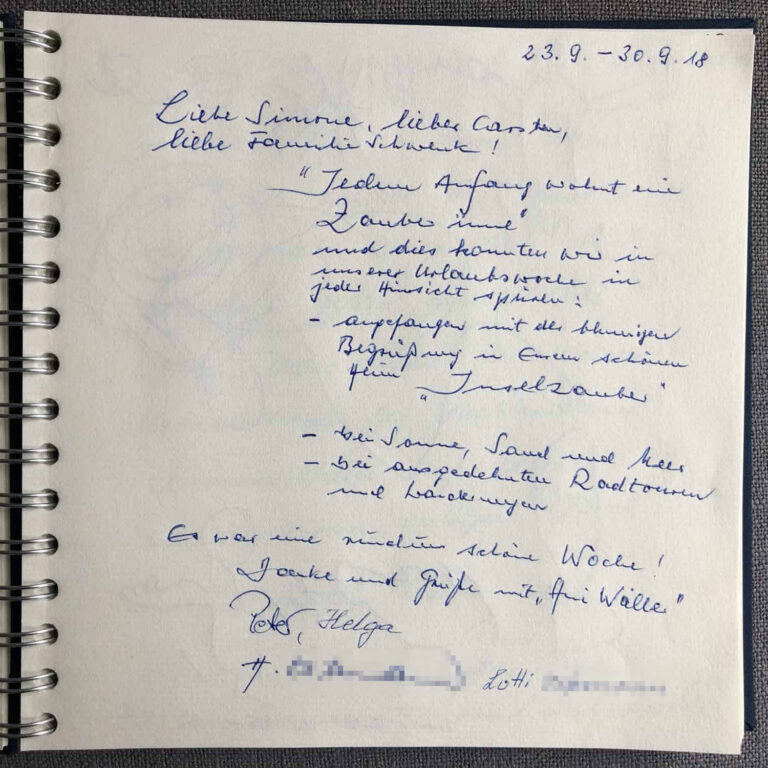 23.9. – 30.9.18
Liebe Simone, lieber Carsten,
liebe Familie Schwenk!
"Jedem Anfang wohnt ein
Zauber inne"
und dies konnten wir in
unserer Urlaubswoche in
jeder Hinsicht spüren:
- angefangen mit der blumigen
Begrüßung in Eurem schönen
Heim „Inselzauber"
- bei Sonne, Sand und Meer
- bei ausgedehnten Radtouren
und Wanderungen
Es war eine rundum schöne Woche!
Danke und Grüße mit „Hui Wäller"
Peter, Helga
H.
Lotti